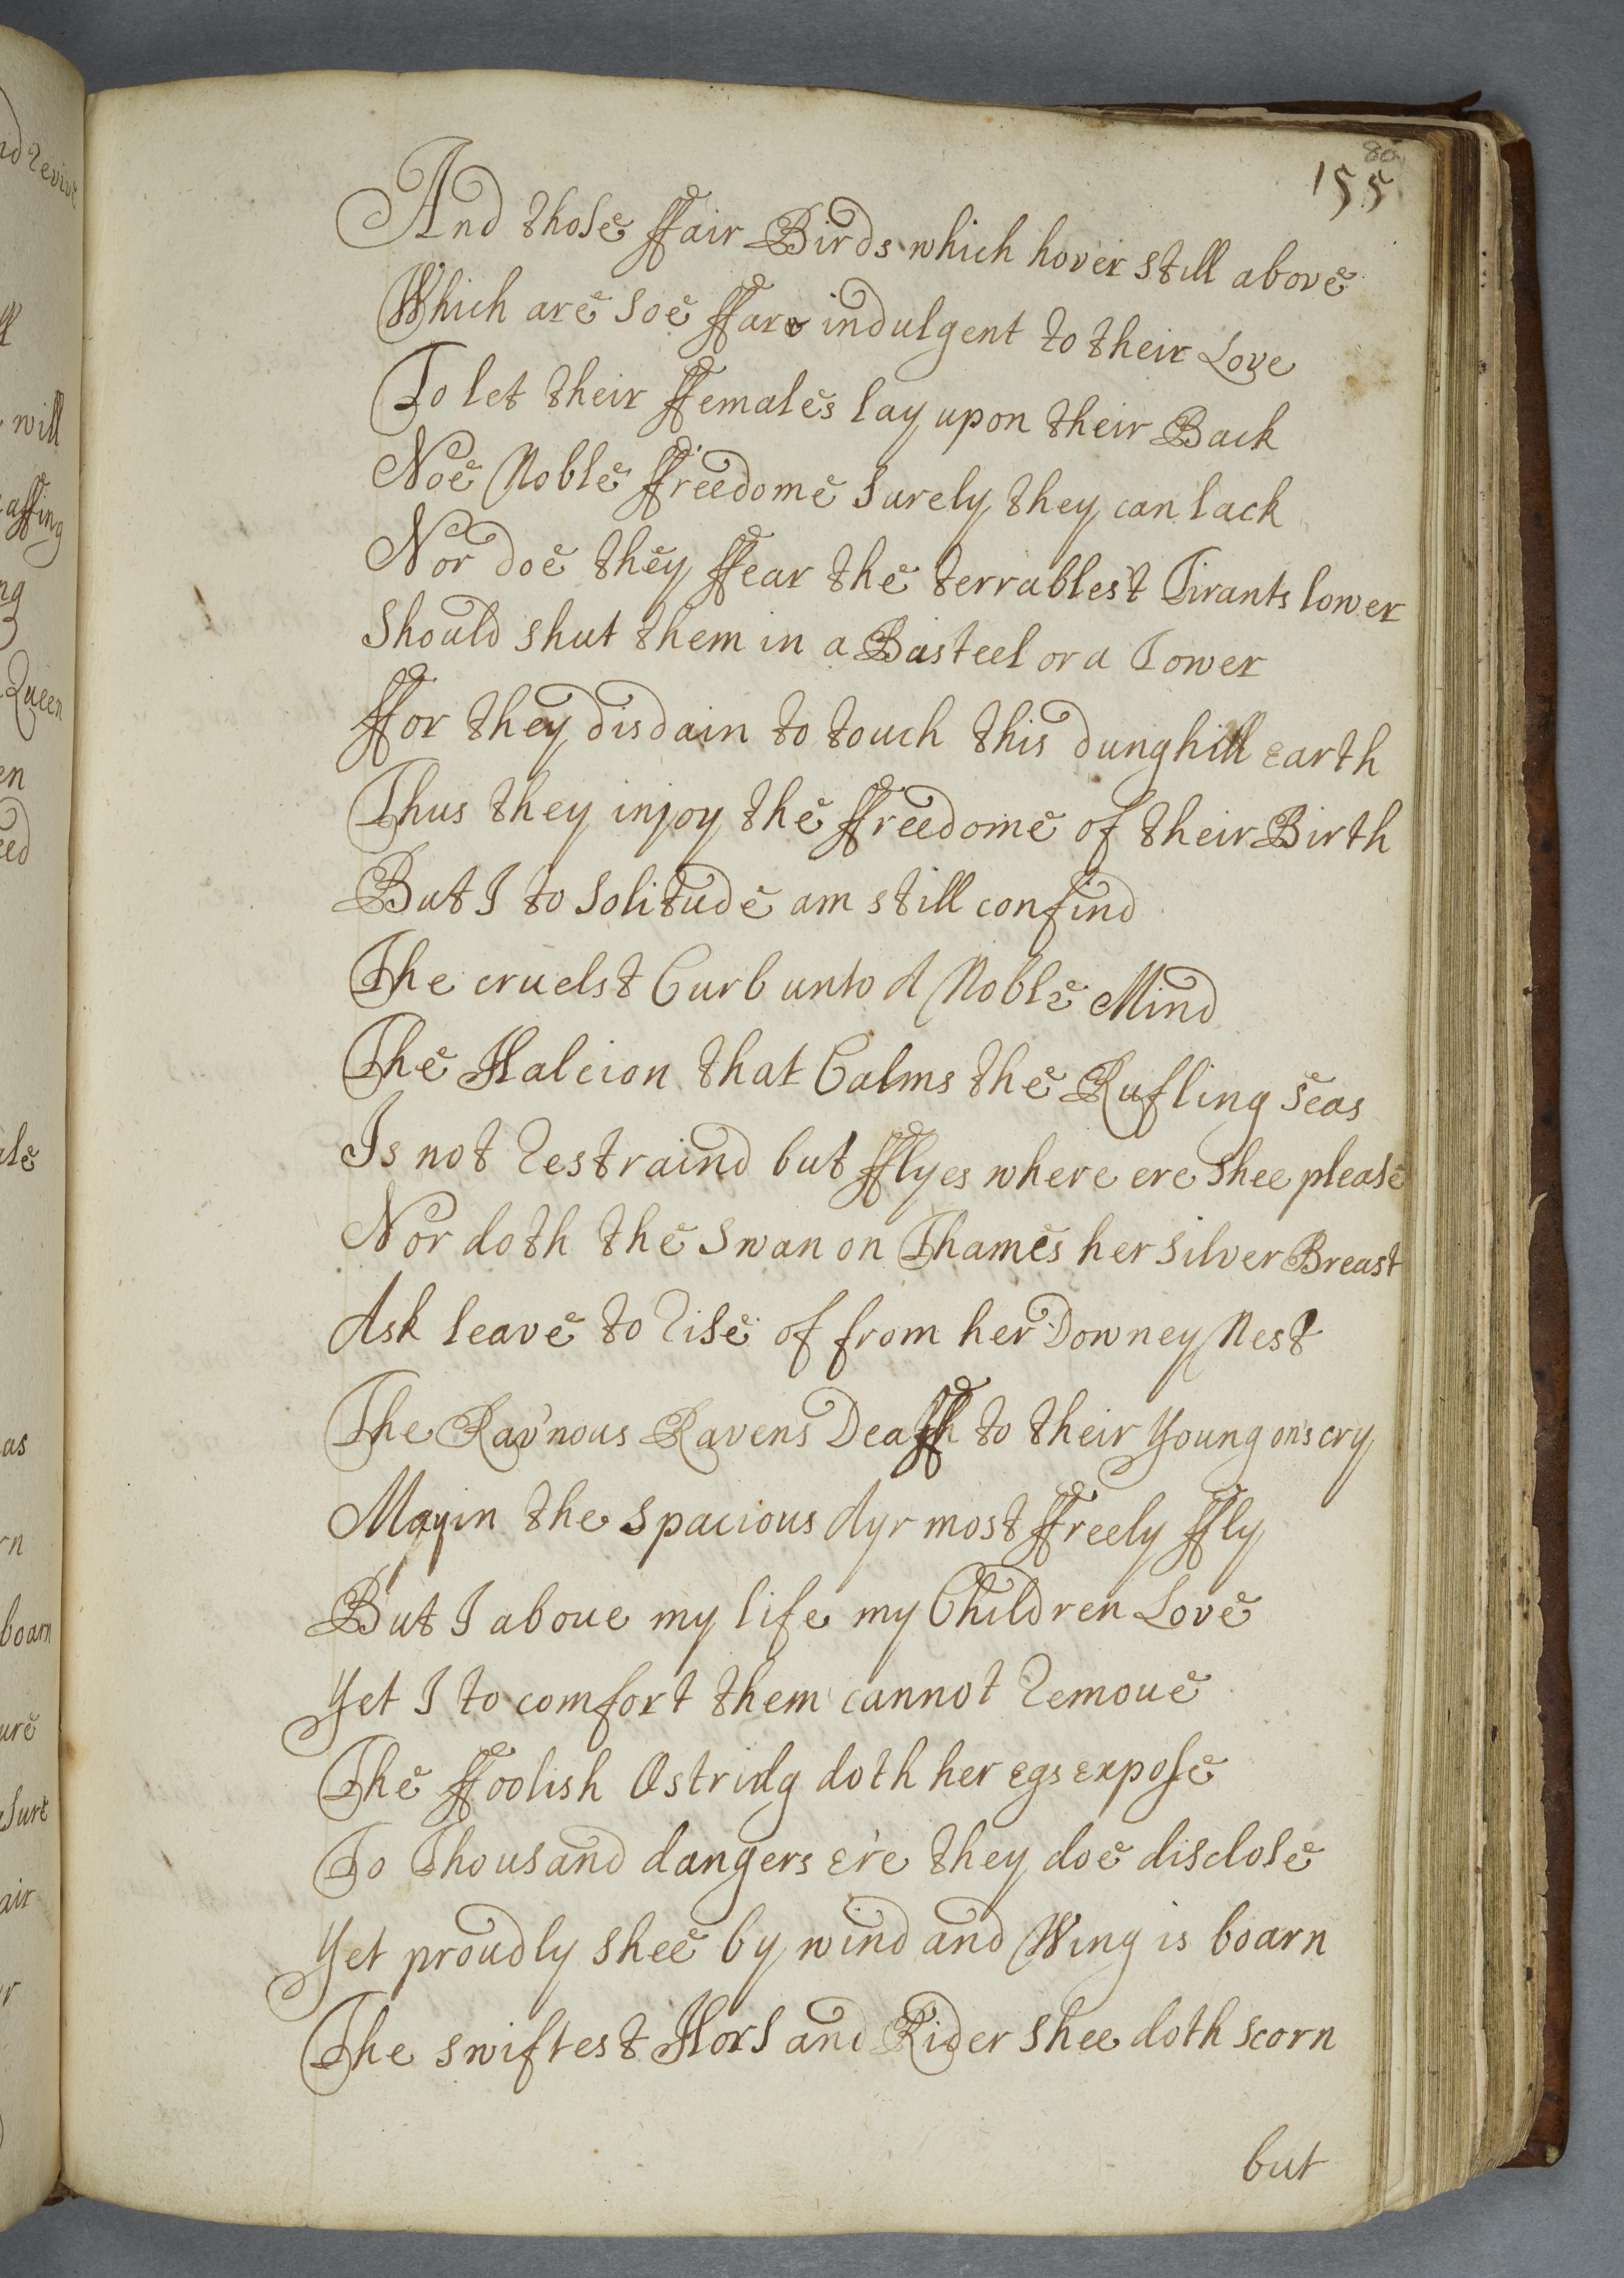 80
155
And those ffair Birds which hover still above
Which are soe ffare indulgent to their Love
To let their ffemales lay upon their Back
Noe Noble ffreedome surely they can lack
Nor doe they ffear the terrablest Tirants lower
Should shut them in a Basteel or a Tower
ffor they disdain to touch this dunghill earth
Thus they injoy the ffreedome of their Birth
But I to solitude am still confind
The cruelst Curb unto A Noble Mind
The Halcion that Calms the Rufling seas
Is not restraind but fflyes where ere shee please
Nor doth the swan on Thames her silver Breast
Ask leave to rise of from her Downey Nest
The Rav'nous Ravens Deaff to their Young on's cry
May in the spacious Ayr most ffreely ffly
But I aboue my life my Children Love
Yet I to comfort them cannot remoue
The ffoolish Ostridg doth her egs expose
To Thousand dangers e're they doe disclose
Yet proudly shee by wind and Wing is boarn
The swiftest Hors and Rider shee doth scorn
but
will
Queen
as
boarn